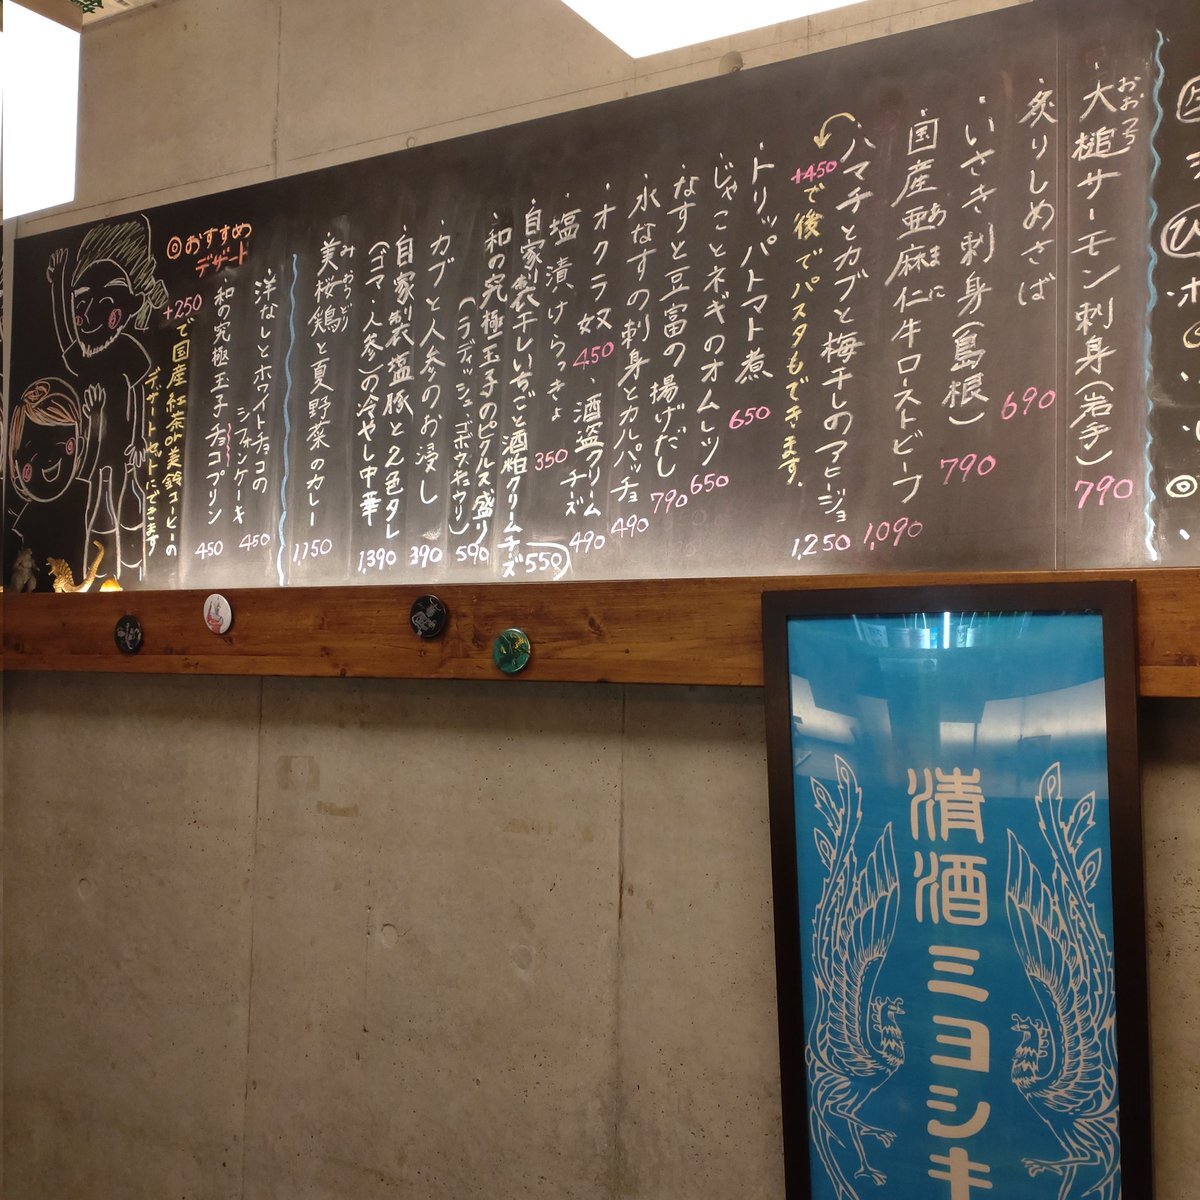 おおつち
・大槌サーモン刺身(岩手) 790
・炙りしめさば 690
・いさき刺身(島根) 790
あまに
・国産亜麻仁牛ローストビーフ 1,090
・ハマチとカブと梅干しのアヒージョ 1,250
+450で後でパスタもできます。
・トリッパトマト煮 650
・じゃことネギのオムレツ 650
・なすと豆富の揚げだし 790
・水なすの刺身とカルパッチョ 490
・オクラ奴 450
・酒盗クリームチーズ 490
・塩漬けらっきょ 350
・自家製干しいちごと酒粕クリームチーズ 550
・和の究極玉子のピクルス盛り 590
(ラディッシュ・ゴボウ・キュウリ)
・カブと人参のお浸し 390
・自家製塩豚と2色タレ
(ゴマ・人参)の冷やし中華 1,390
みおうどり
・美桜鶏と夏野菜のカレー 1,150
◎おすすめ
デザート
・洋なしとホワイトチョコの
シフォンケーキ 450
・和の究極玉子チョコプリン 450
+250で国産紅茶or美鈴コーヒーの
デザートセットにできます
清酒ミヨシキ